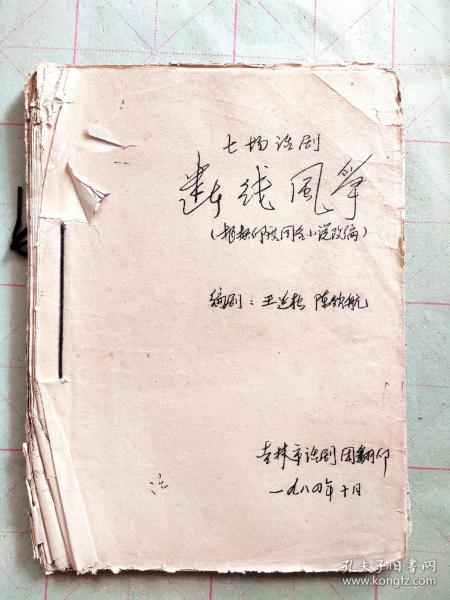 七场话剧
断线风筝
(根据 同名小说改编)
编剧：王延松 陈欲航
吉林市话剧团翻印
一九八四年十月
孔夫子旧书网
www.kongfz.com